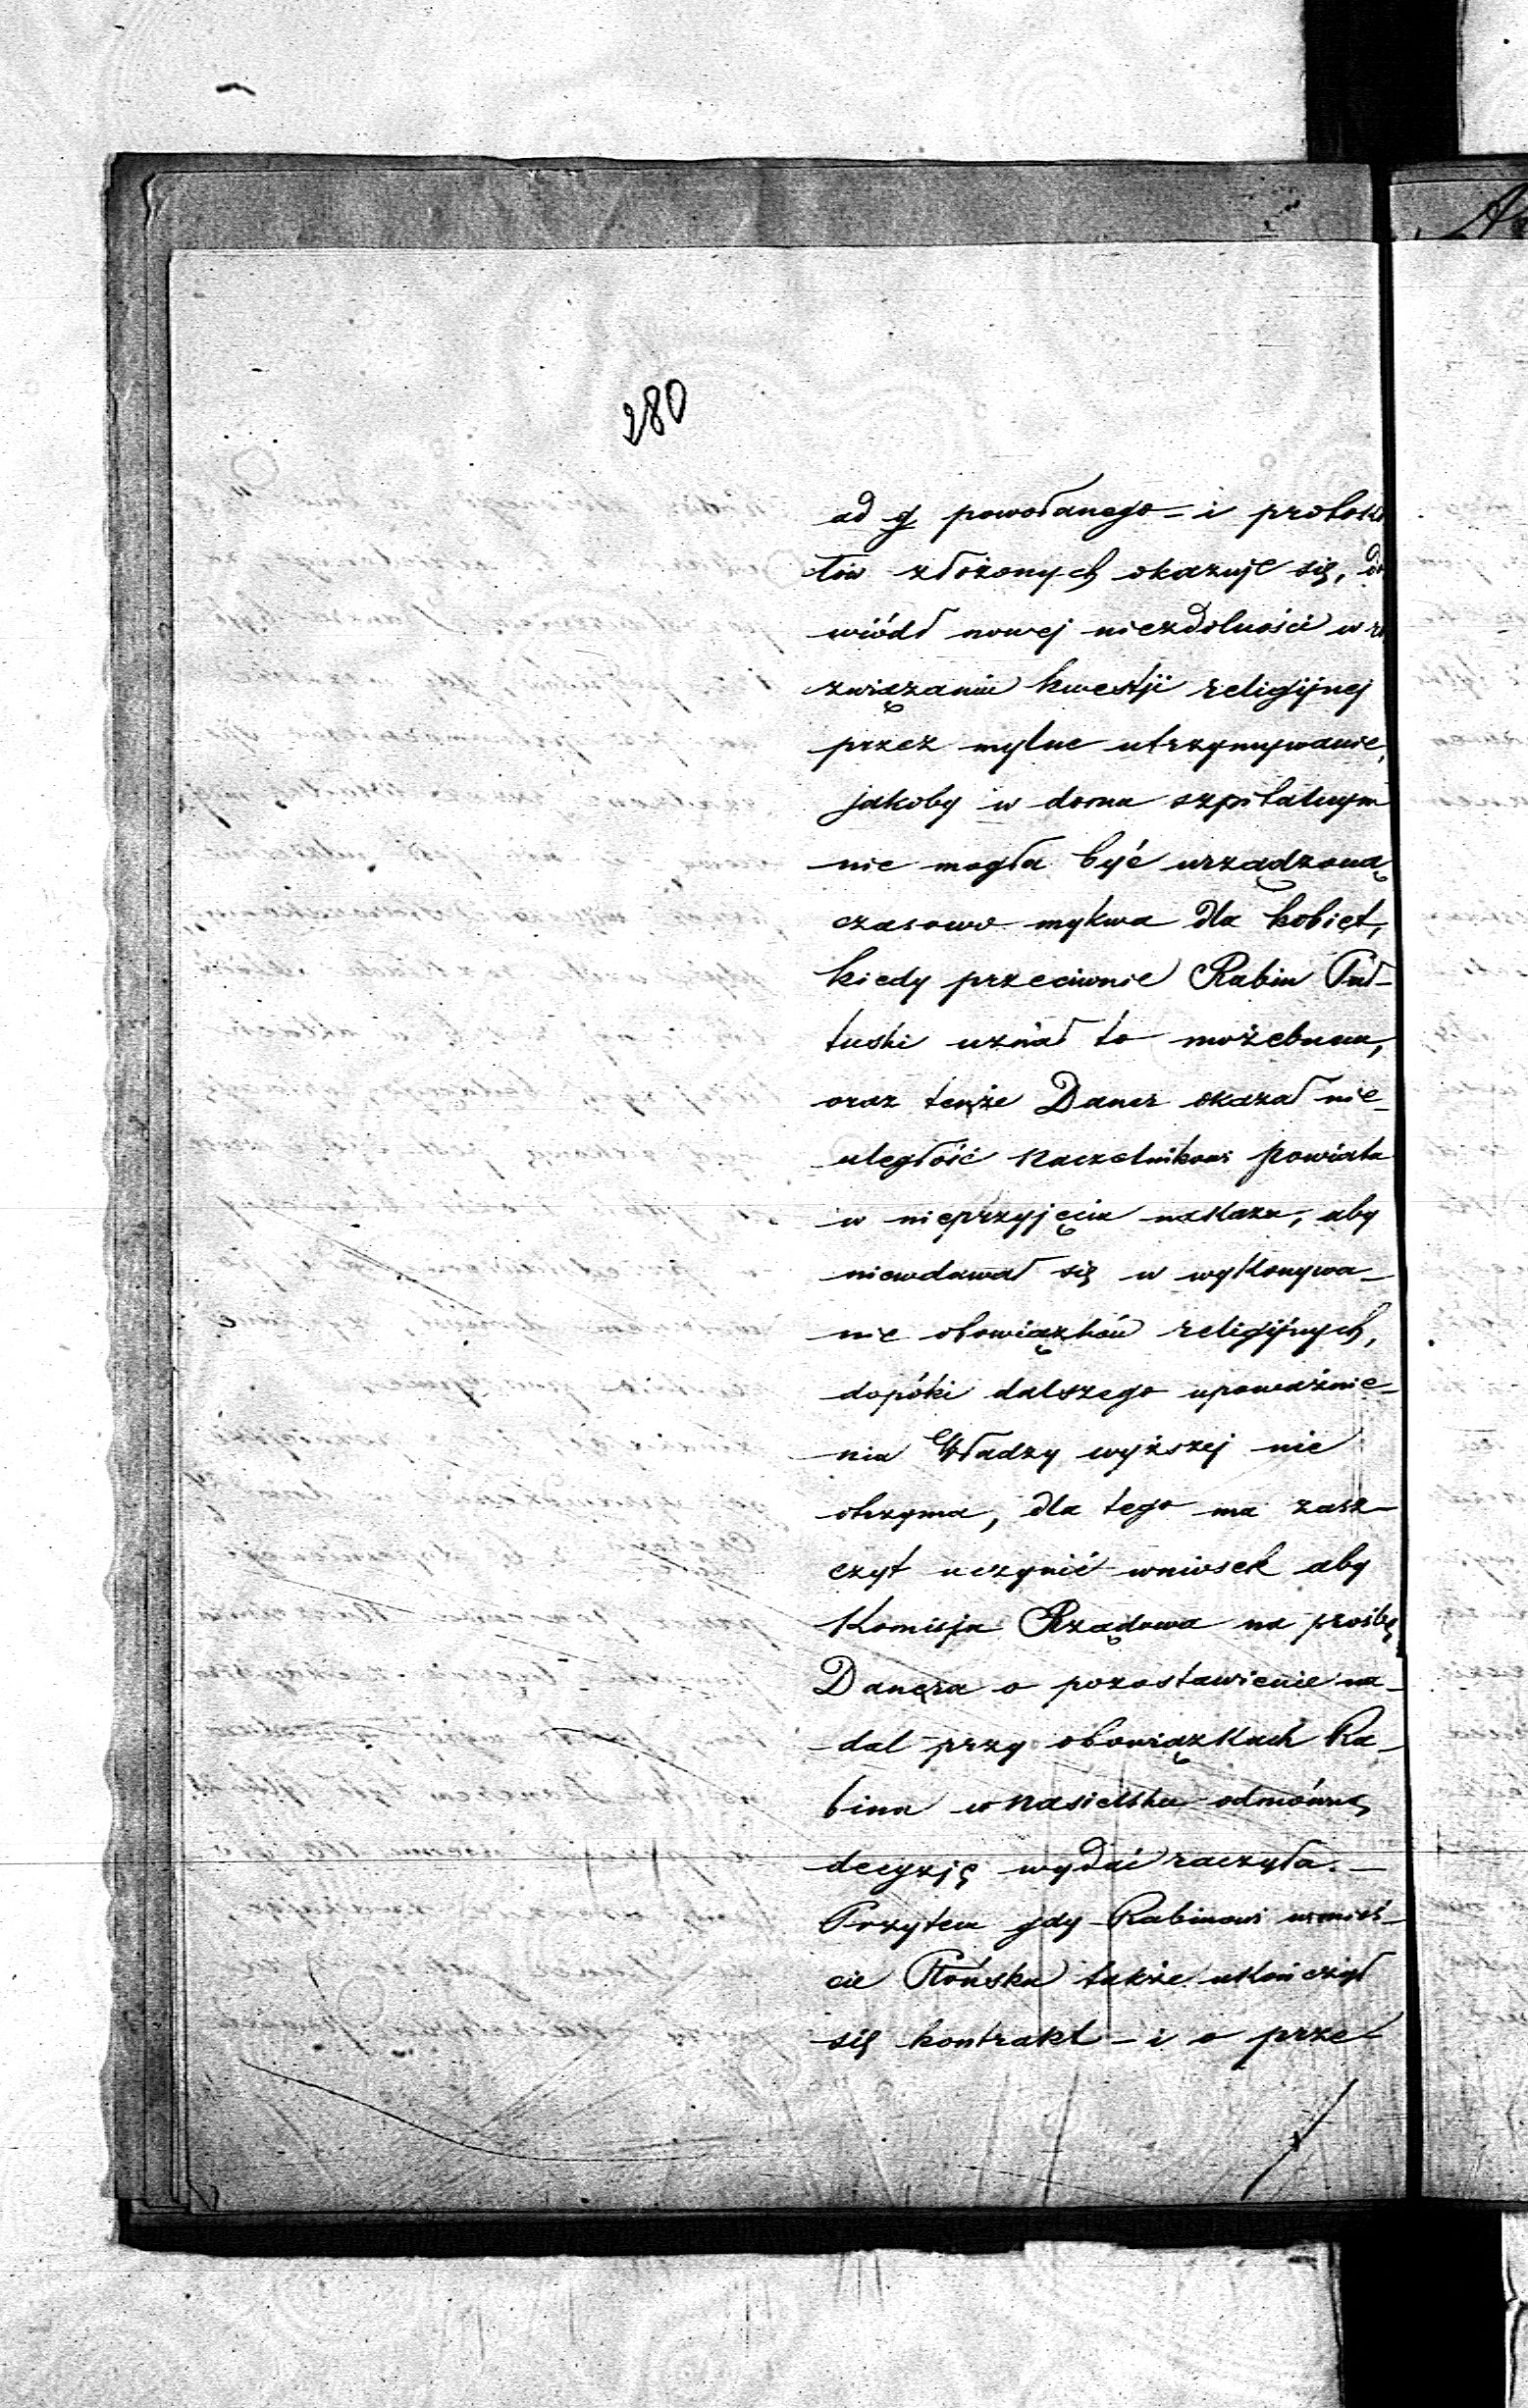 280
ad g powołanego – i protoku
łów złożonych okazuje się, do
wiódł nowej niezdolności w ro
związaniu kwestji religijnej
przez mylne utrzymywanie,
jakoby w domu szpitalnym
nie mogła być urządzoną
czasowo mykwa dla kobiet,
kiedy przeciwnie Rabin Puł-
tuski uznał to możebnem,
oraz tenże Daner okazał nie-
uległość Naczelnikowi powiatu
w nieprzyjęciu nakazu, aby
niewdawał się w wykonywa-
nie obowiązków religijnych,
dopóki dalszego upoważnie-
nia Władzy wyższej nie
otrzyma, dla tego ma zasz-
czyt uczynić wniosek aby
Komisja Rządowa na prośbę
Danera o pozostawienie na-
dal przy obowiązkach Ra-
bina w Nasielsku odmówną
decyzję wydać raczyła. –
Przytem gdy Rabinowi w mieś-
cie Płońsku także ukończył
się kontrakt – i o prze-